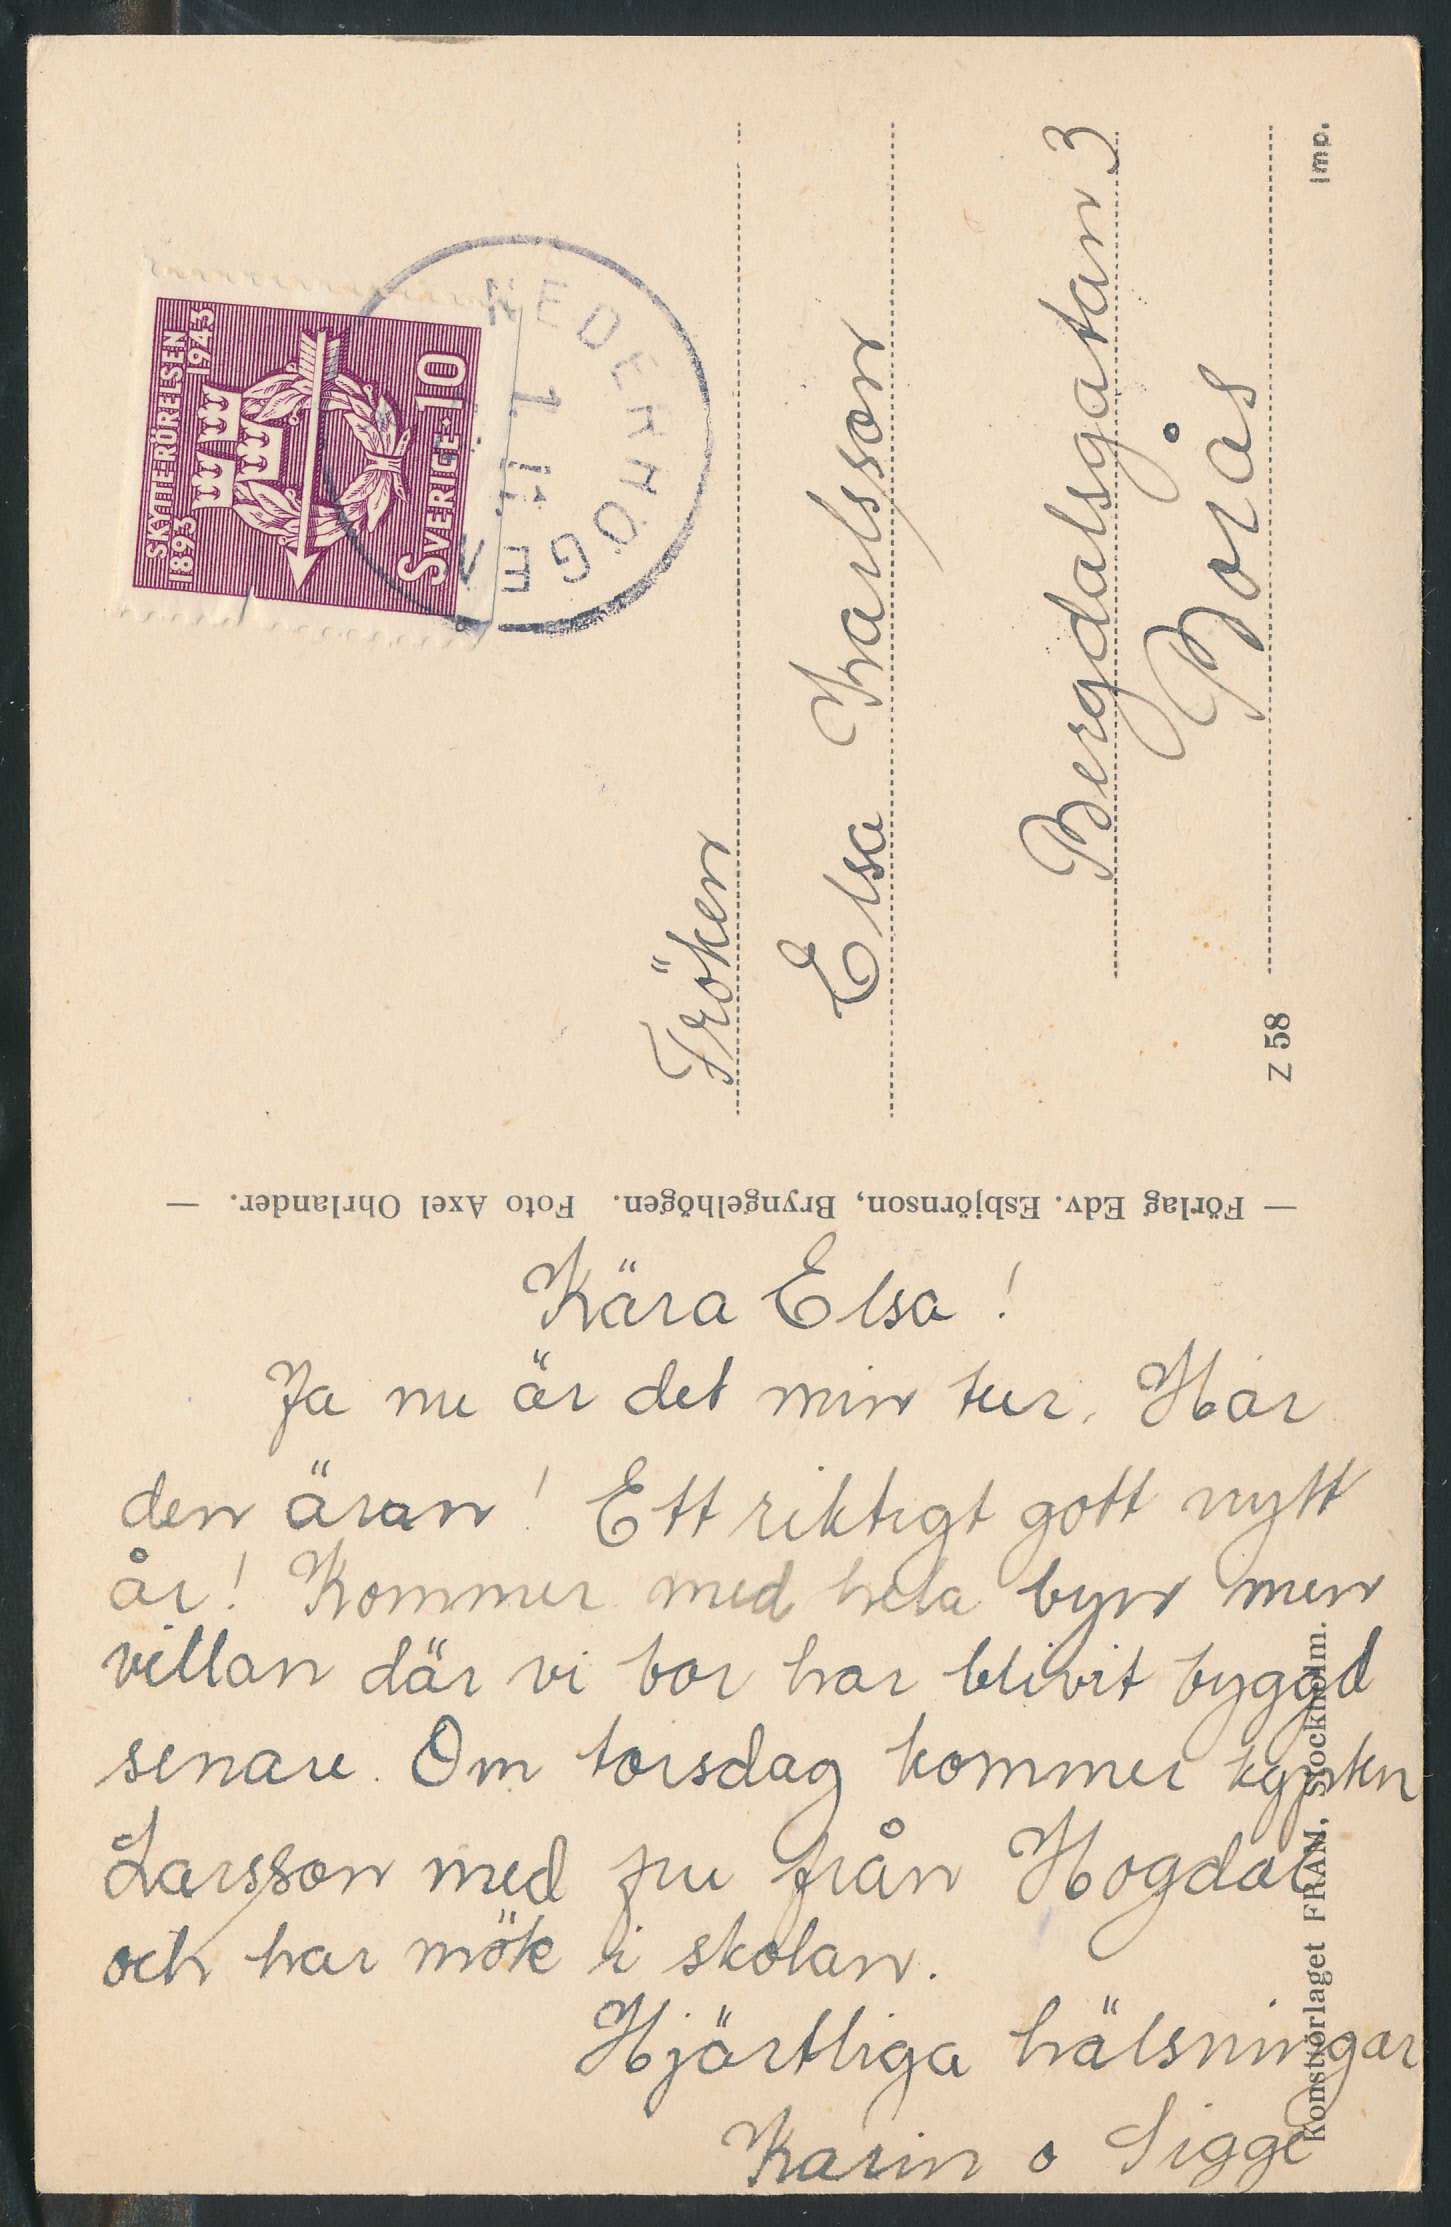 SKYTTERÖRELSEN
1893 1943
SVERIGE 10
NEDERHÖGEN
Fröken
Elsa Karlsson
Bergdalsgatan 3
Borås
Z 58
Imp.
— Förlag Edv. Esbjörnson, Bryngelhögen. Foto Axel Ohrlander. —
Kära Elsa!
Ja nu är det min tur. Har
den äran! Ett riktigt gott nytt
år! Kommer med hela byn men
villan där vi bor har blivit byggd
senare. Om torsdag kommer
Larsson med fru från Hogdal
och har möte i skolan.
Hjärtliga hälsningar
Karin o Sigge
Konstförlaget FRAM, Stockholm.